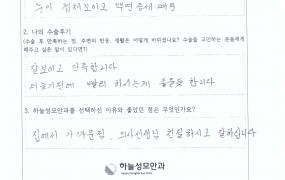 눈이 침침보이고 백내장증세 때문
2. 나의 수술후기
(수술 후 만족하는 점, 주변의 반응, 생활은 어떻게 바뀌셨나요? 수술을 고민하는 분들에게
해주고 싶은 말이 있다면?)
잘보이고 만족합니다
더늦기전에 빨리 하시는게 좋을듯 합니다
3. 하늘성모안과를 선택하신 이유와 좋았던 점은 무엇인가요?
집에서 가까운점, 의사선생님 친절하시고 잘하십니다
하늘성모안과